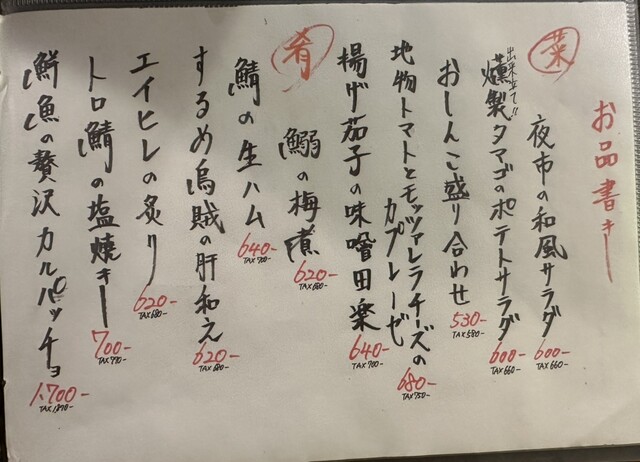 お品書き
菜
夜市の和風サラダ 600-
TAX 660-
出来立て!!
燻製タマゴのポテトサラダ 600-
TAX 660-
おしんこ盛り合わせ 530-
TAX 580-
地物トマトとモッツァレラチーズの
カプレーゼ 680-
TAX 750-
揚げ茄子の味噌田楽 640-
TAX 700-
肴
鰯の梅煮 620-
TAX 680-
鯖の生ハム 640-
TAX 700-
するめ烏賊の肝和え 620-
TAX 680-
エイヒレの炙り 620-
TAX 680-
トロ鯖の塩焼き 700-
TAX 770-
鮮魚の贅沢カルパッチョ 1.700-
TAX 1.870-